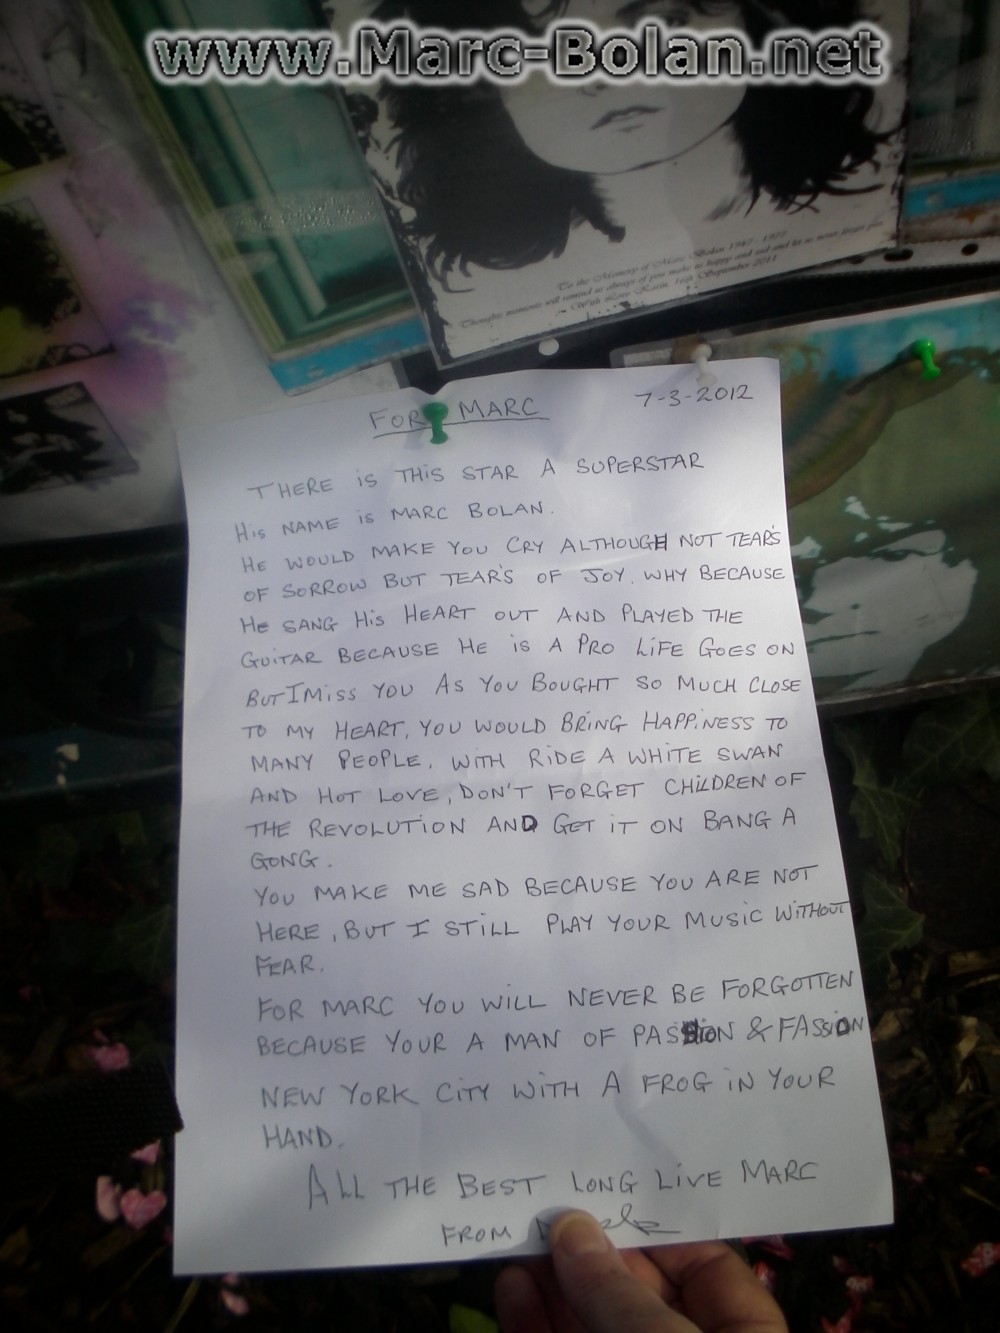 www.Marc-Bolan.net
To the Memory of Marc Bolan 1947 - 1977
Thoughts moments will remind us always of you make us happy and sad and let us never forget you
With Love Karin 16th September 2011
FOR MARC
7-3-2012
THERE iS THiS STAR A SUPERSTAR
HiS NAME iS MARC BOLAN.
HE WOULD MAKE YOU CRY ALTHOUGH NOT TEAR'S
OF SORROW BUT TEAR'S OF JOY. WHY BECAUSE
HE SANG HiS HEART OUT AND PLAYED THE
GUiTAR BECAUSE HE iS A PRO LiFE GOES ON
BUT I MiSS YOU AS YOU BOUGHT SO MUCH CLOSE
TO MY HEART, YOU WOULD BRiNG HAPPiNESS TO
MANY PEOPLE, WiTH RiDE A WHiTE SWAN
AND HOT LOVE, DON'T FORGET CHiLDREN OF
THE REVOLUTiON AND GET iT ON BANG A
GONG.
YOU MAKE ME SAD BECAUSE YOU ARE NOT
HERE, BUT I STiLL PLAY YOUR MUSiC WiTHOUT
FEAR.
FOR MARC YOU WiLL NEVER BE FORGOTTEN
BECAUSE YOUR A MAN OF PASSiON & FASSiON
NEW YORK CiTY WiTH A FROG iN YOUR
HAND.
ALL THE BEST LONG LiVE MARC
FROM